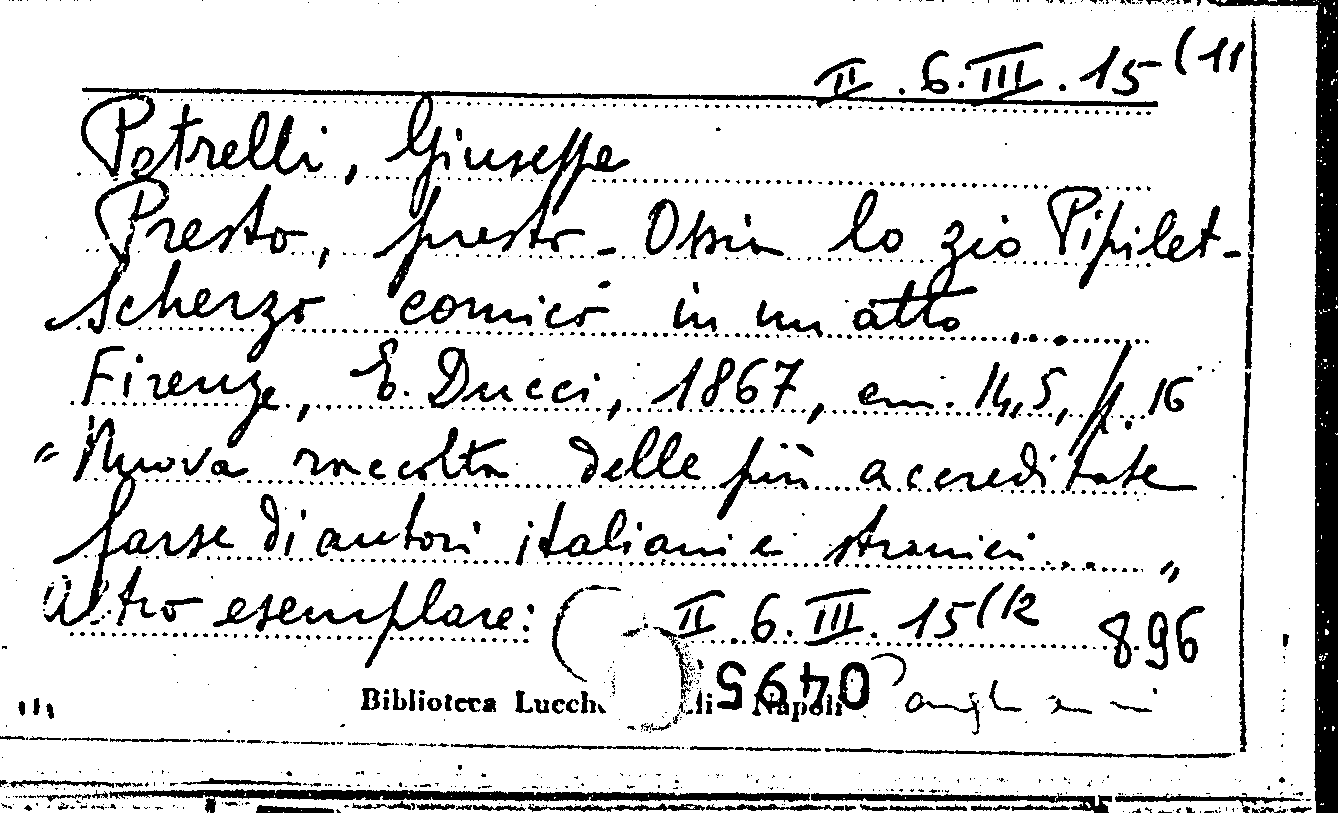 II. 6. III. 15 (11
Petrelli, Giuseppe
Presto, presto - Ossia lo zio Pipilet -
Scherzo comico in un atto ...
Firenze, E. Ducci, 1867, cm. 14,5, p. 16
"Nuova raccolta delle più accreditate
farse di autori italiani e stranieri ... "
Altro esemplare: II 6. III. 15 (12
896
Biblioteca Lucch li Napoli
04995